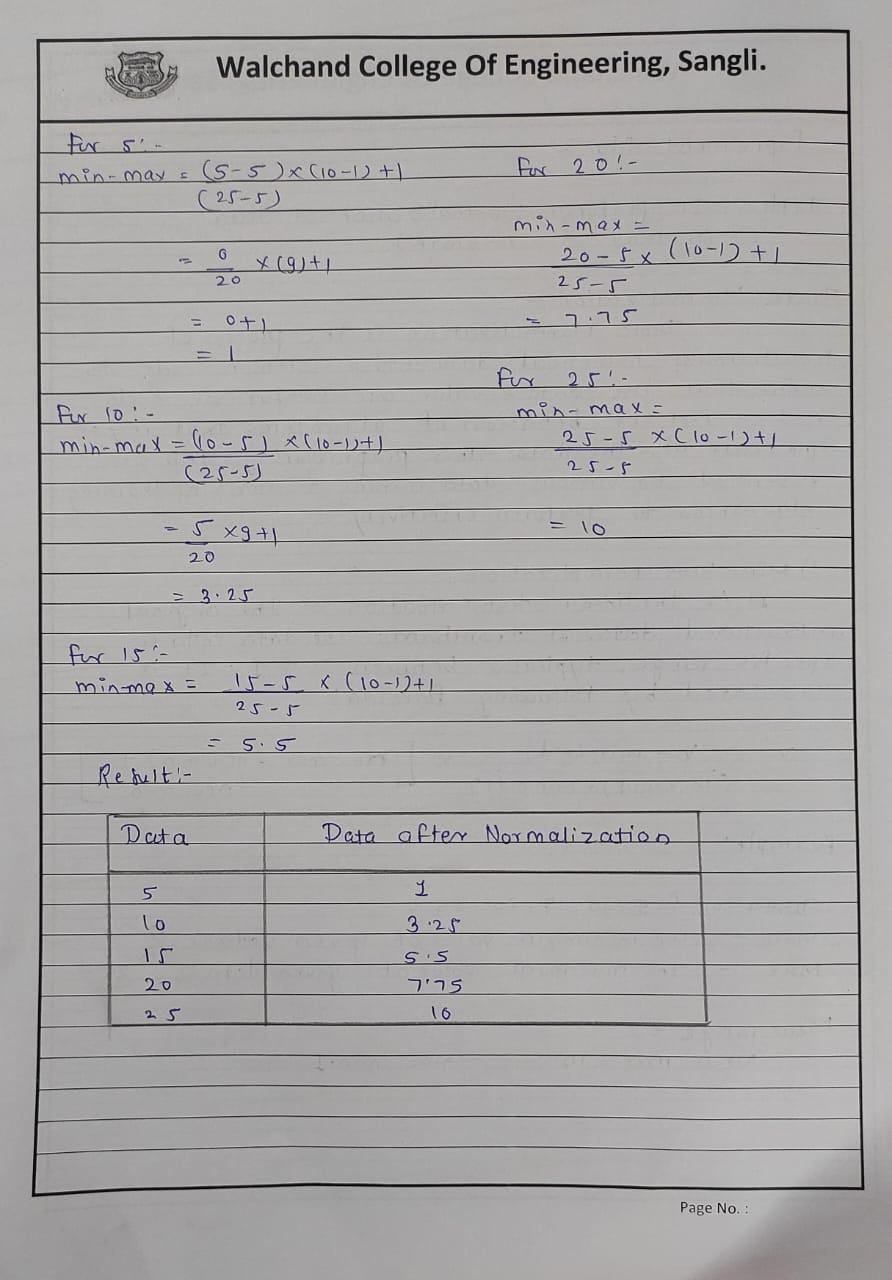 Walchand College Of Engineering, Sangli.
For 5:-
min-max = (5-5)x(10-1)+1
(25-5)
= 0 x(9)+1
20
= 0+1
= 1
For 10:-
min-max = (10-5) x(10-1)+1
(25-5)
= 5 x9+1
20
= 3.25
For 15:-
min-max = 15-5 x (10-1)+1
25-5
= 5.5
For 20:-
min-max =
20-5 x (10-1)+1
25-5
= 7.75
For 25:-
min-max =
25-5 x(10-1)+1
25-5
= 10
Result:-
Data Data after Normalization
5 1
10 3.25
15 5.5
20 7.75
25 10
Page No. :